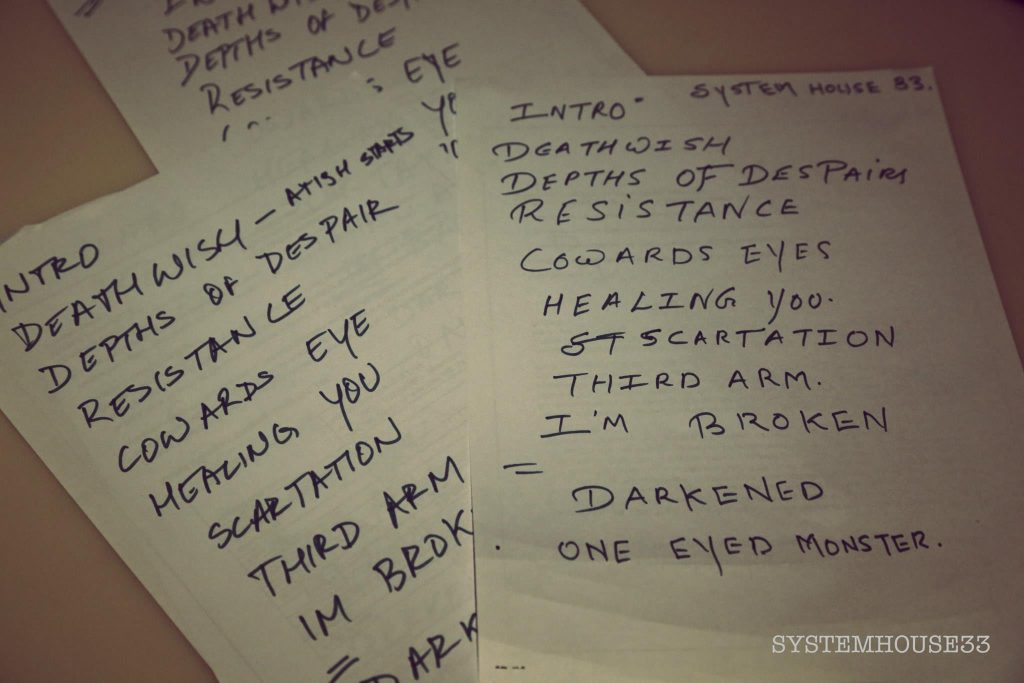 DEATHWISH
DEPTHS OF
RESISTANCE
EYE
INTRO
DEATHWISH — ATISH STARTS
DEPTHS OF DESPAIR
RESISTANCE
COWARDS EYE
HEALING YOU
SCARTATION
THIRD ARM
IM BROK
=
DARK
SYSTEM HOUSE 33.
INTRO
DEATHWISH
DEPTHS OF DESPAIRS
RESISTANCE
COWARDS EYES
HEALING YOU.
ST SCARTATION
THIRD ARM.
I'M BROKEN
=
DARKENED
. ONE EYED MONSTER.
SYSTEMHOUSE33